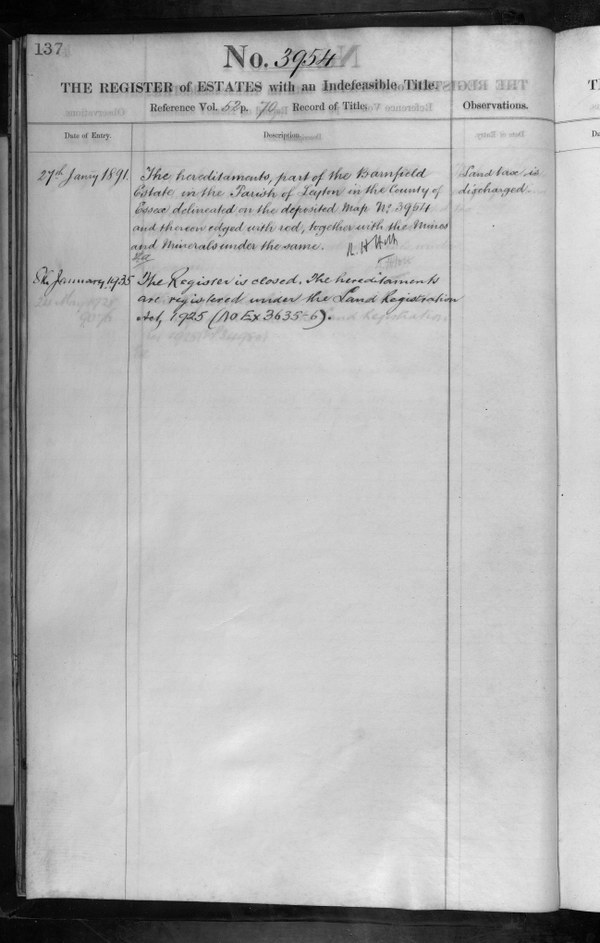 137
No. 3954
THE REGISTER of ESTATES with an Indefeasible Title.
Reference Vol. 52 p. 70 Record of Title.
Observations.
Date of Entry.
Description.
27th Janry 1891.
The hereditaments, part of the Barnfield
Estate in the Parish of Leyton in the County of
Essex delineated on the deposited Map No. 3954
and thereon edged with red, together with the Mines
and Minerals under the same.
Land tax is
discharged.
January, 1935
The Register is closed. The hereditaments
are registered under the Land Registration
Act, 1925 (No Ex 3635-6).